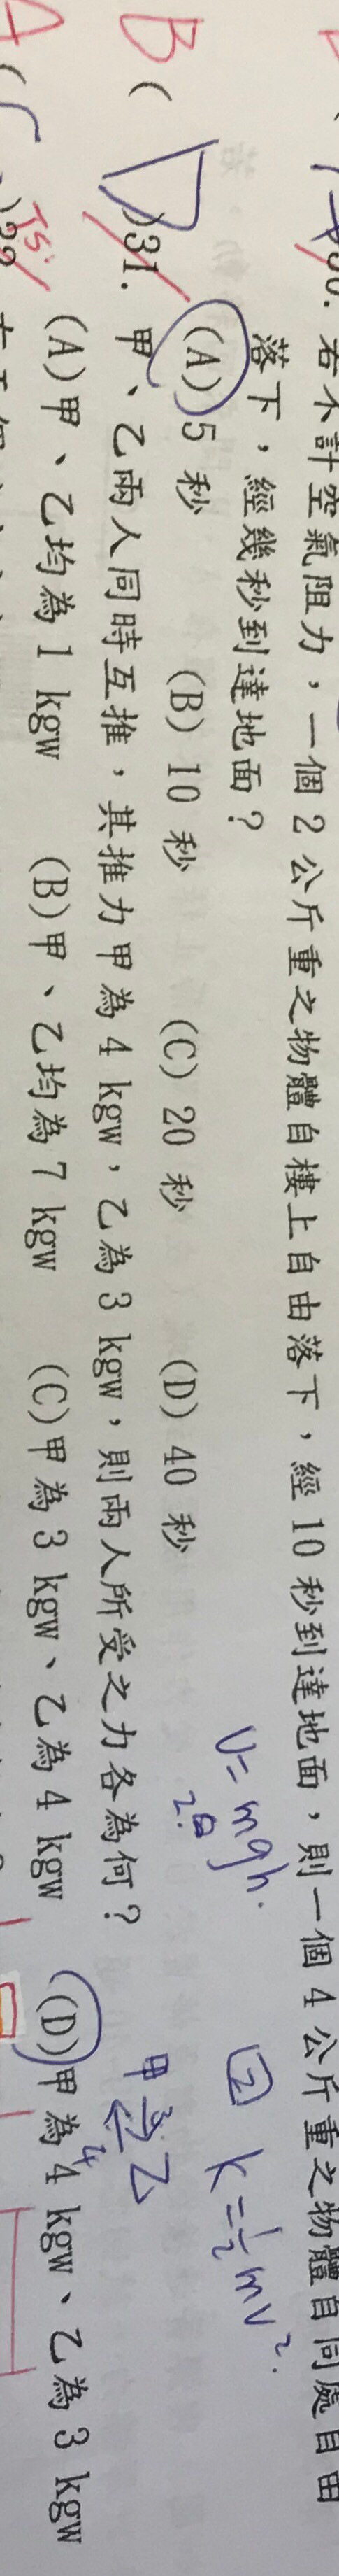 30. 若不計空氣阻力，一個 2 公斤重之物體自樓上自由落下，經 10 秒到達地面，則一個 4 公斤重之物體自同處自由
落下，經幾秒到達地面？
(A) 5 秒 (B) 10 秒 (C) 20 秒 (D) 40 秒
U = mgh.
K = ½ mv².
B ( D )31. 甲、乙兩人同時互推，其推力甲為 4 kgw，乙為 3 kgw，則兩人所受之力各為何？
甲 3 乙
4
(A)甲、乙均為 1 kgw (B)甲、乙均為 7 kgw (C)甲為 3 kgw、乙為 4 kgw (D)甲為 4 kgw、乙為 3 kgw
A (